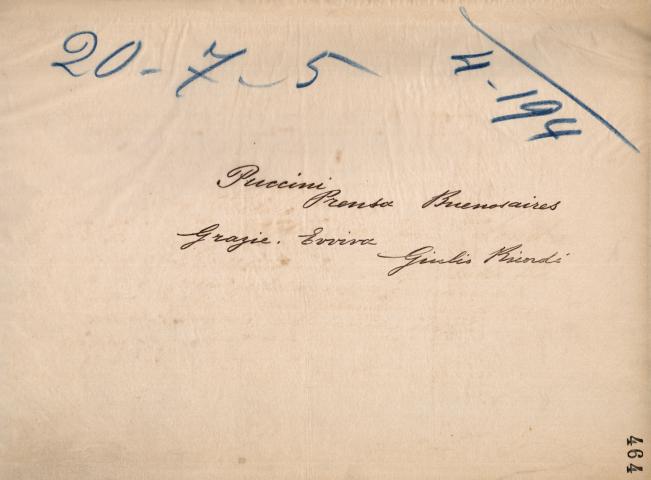 20-7-5
4-194
Puccini
Prensa Buenosaires
Grazie. Evviva
Giulio Ricordi
464